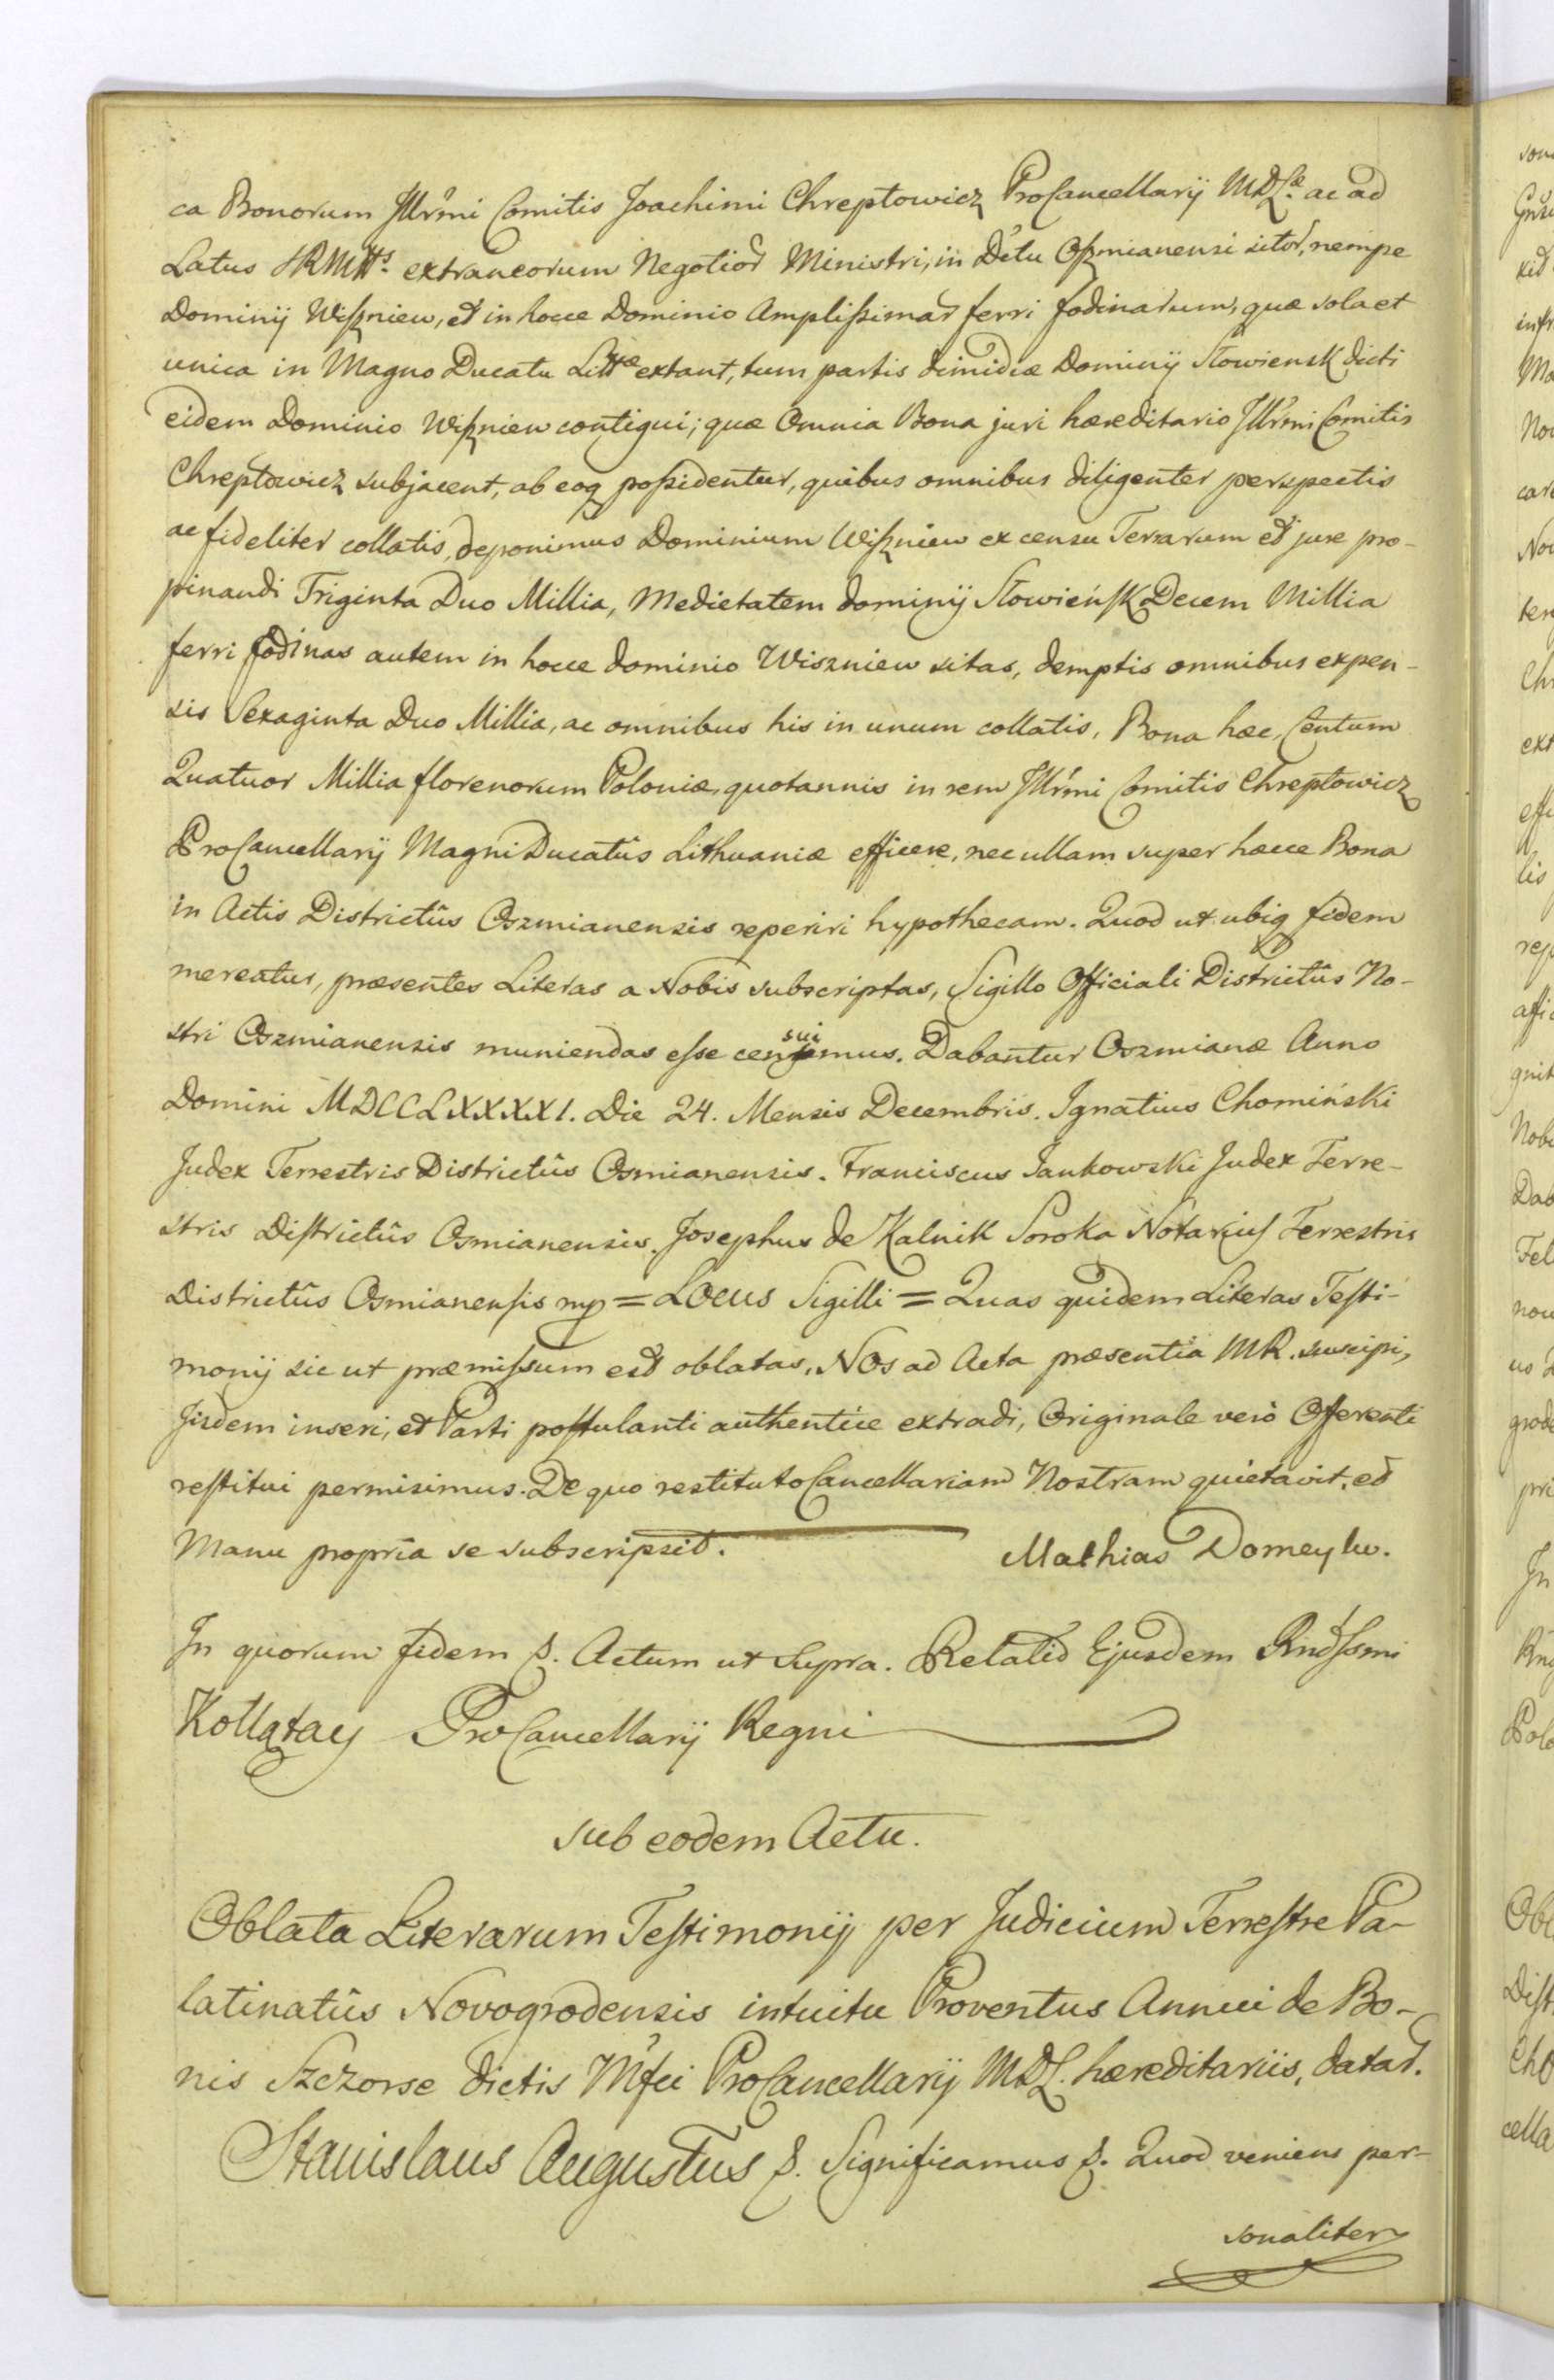 ca Bonorum Jllr̃mi Comitis Joachimi Chreptowicz ProCancellarij MDLæ. ac ad
Latus SRMtts. extraneorum Negotior Ministri, in Dĩtu Oszmianensi sitor, nempe
Dominij Wiszniew, et in hocce Dominio Amplissimar ferri fodinarum, quæ sola et
unica in Magno Ducatu Littæ extant, tum partis dimidiæ Dominij Słowiensk dicti
eidem Dominio Wiszniew contigui; quæ Omnia Bona juri hæreditario Jllr̃mi Comitis
Chreptowicz subjacent, ab eoq possidentur, quibus omnibus diligenter perspectis
ac fideliter collatis, deponimus Dominium Wiszniew ex censu Terrarum et jure pro-
pinandi Triginta Duo Millia, Medietatem dominij Słowieńsk Decem Millia
ferri fodinas autem in hocce dominio Wiszniew sitas, demptis omnibus expen-
sis Sexaginta Duo Millia, ac omnibus his in unum collatis, Bona hæc, Centum
Quatuor Millia florenorum Poloniæ, quotannis in rem Jllr̃mi Comitis Chreptowicz
ProCancellarij Magni Ducatûs Lithuaniæ efficere, nec ullam super hæcce Bona
in Actis Districtûs Oszmianensis reperiri hypothecam. Quod ut ubiq fidem
mereatur, præsentes Literas a Nobis subscriptas, Sigillo Officiali Districtûs No-
stri Oszmianensis muniendas esse censuimus. Dabantur Oszmianæ Anno
Domini MDCCLXXXXI. Die 24. Mensis Decembris. Ignatius Chomiński
Judex Terrestris Districtûs Osmianensis. Franciscus Jankowski Judex Terre-
stris Districtûs Osmianensis. Josephus de Kalnik Soroka Notarius Terrestris
Districtûs Osmianensis mp = Locus Sigilli = Quas quidem Literas Testi-
monij sic ut præmissum est oblatas, Nos ad Acta præsentia MR. suscipi,
Jisdem inseri, et Parti postulanti authentice extradi, Originale verò Offerenti
restitui permisimus. De quo restituto Cancellariam Nostram quietavit, et
Manu propria se subscripsit. Mathias Domeyko.
In quorum fidem &. Actum ut supra. Relatio Ejusdem Rnd̃ssmi
Kołłątay ProCancellarij Regni
sub eodem Actu.
Oblata Literarum Testimonij per Judicium Terrestre Pa-
latinatûs Novogrodensis intuitu Proventus Annui de Bo-
nis Szczorse dictis M̃fci ProCancellarij MDL. hæreditariis, datar.
Stanislaus Augustus &. Significamus &. Quod veniens per-
sonaliter